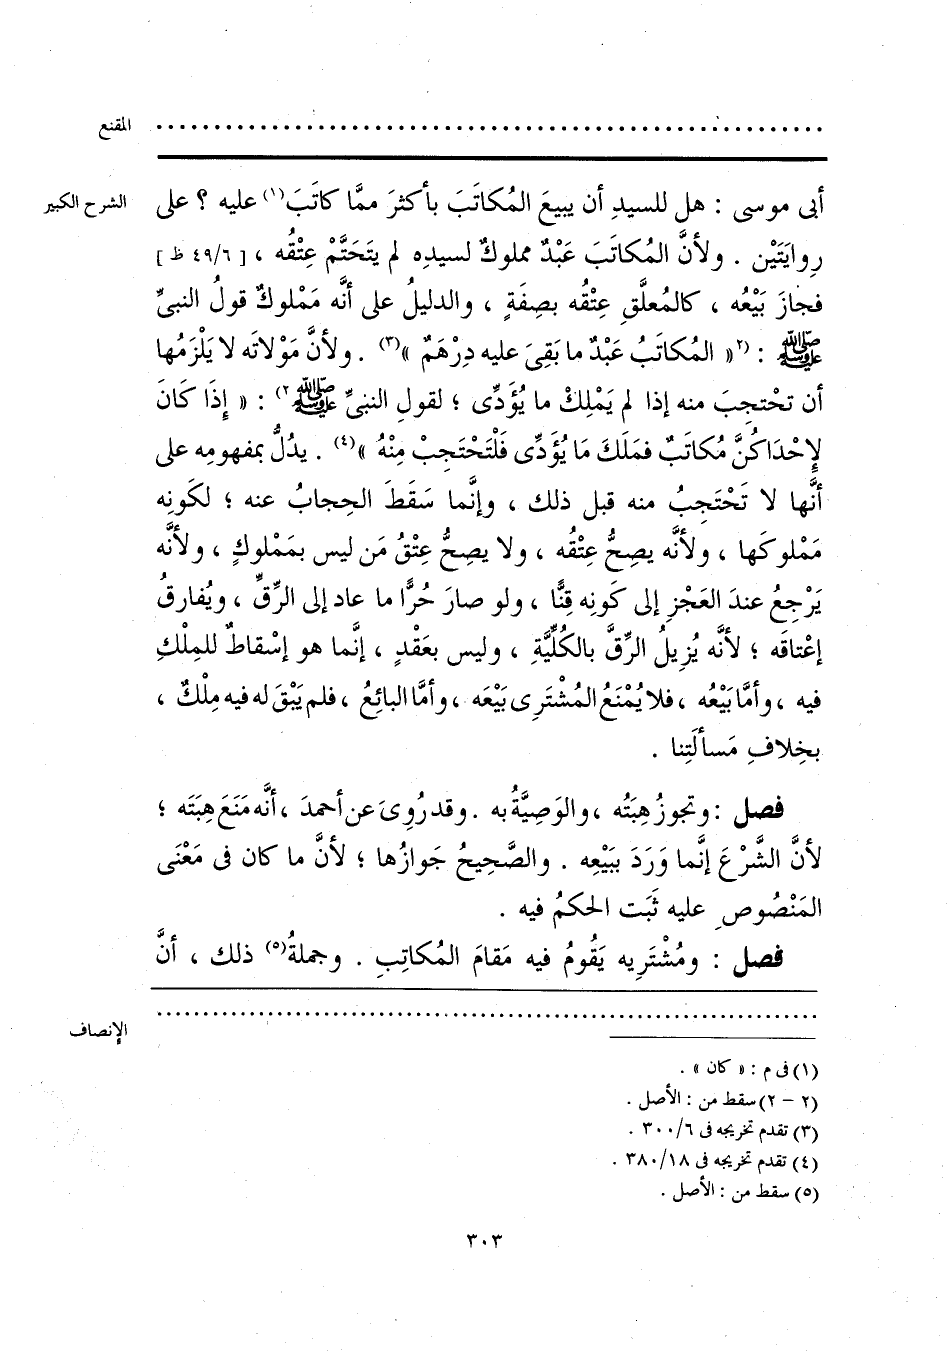 المقنع ........................................
الشرح الكبير
أبى موسى : هل للسيدِ أن يبيعَ المُكاتَبَ بأكثرَ ممَّا كاتَبَ(١) عليه ؟ على
رِوايَتَيْن . ولأنَّ المُكاتَبَ عَبْدٌ مملوكٌ لسيدِه لم يتَحَتَّمْ عِتْقُه ، [ ٤٩/٦ ظ ]
فجازَ بَيْعُه ، كالمُعلَّقِ عِتْقُه بصِفَةٍ ، والدليلُ على أنَّه مَمْلوكٌ قولُ النبىِّ
ﷺ : (٢« المُكاتَبُ عَبْدٌ ما بَقِىَ عليه دِرْهَمٌ »(٣) . ولأنَّ مَوْلاتَه لا يَلْزَمُها
أن تحْتجِبَ منه إذا لم يَمْلِكْ ما يُؤَدِّى ؛ لقولِ النبىِّ ﷺ٢) : « إِذَا كَانَ
لِإحْدَاكُنَّ مُكاتَبٌ فمَلَكَ مَا يُؤَدِّى فَلْتَحْتَجِبْ مِنْهُ »(٤) . يدُلُّ بمفهومِه على
أنَّها لا تَحْتَجِبُ منه قبل ذلك ، وإنَّما سَقَطَ الحِجابُ عنه ؛ لكَونِه
مَمْلوكَها ، ولأنَّه يصِحُّ عِتْقُه ، ولا يصِحُّ عِتْقُ مَن ليس بمَمْلوكٍ ، ولأنَّه
يَرْجِعُ عندَ العَجْزِ إلى كَونِه قِنًّا ، ولو صارَ حُرًّا ما عاد إلى الرِّقِّ ، ويُفارِقُ
إعْتاقَه ؛ لأنَّه يُزِيلُ الرِّقَّ بالكُلِّيَّةِ ، وليس بعَقْدٍ ، إنَّما هو إسْقاطٌ للمِلْكِ
فيه ، وأمَّا بَيْعُه ، فلا يُمْنَعُ المُشْتَرِى بَيْعَه ، وأمَّا البائِعُ ، فلم يَبْقَ له فيه مِلْكٌ ،
بخِلافِ مَسألَتِنا .
فصل : وتجوزُ هِبَتُه ، والوَصِيَّةُ به . وقد رُوِىَ عن أحمدَ ، أنَّه مَنَعَ هِبَتَه ؛
لأنَّ الشَّرْعَ إنَّما وَرَدَ ببَيْعِه . والصَّحِيحُ جَوازُها ؛ لأنَّ ما كان فى مَعْنَى
المَنْصُوصِ عليه ثَبَت الحكمُ فيه .
فصل : ومُشْتَرِيه يَقُومُ فيه مَقامَ المُكاتِبِ . وجملةُ(٥) ذلك ، أنَّ
الإنصاف ........................................
(١) فى م : « كان » .
(٢ - ٢) سقط من : الأصل .
(٣) تقدم تخريجه فى ٣٠٠/٦ .
(٤) تقدم تخريجه فى ٣٨٠/١٨ .
(٥) سقط من : الأصل .
٣٠٣